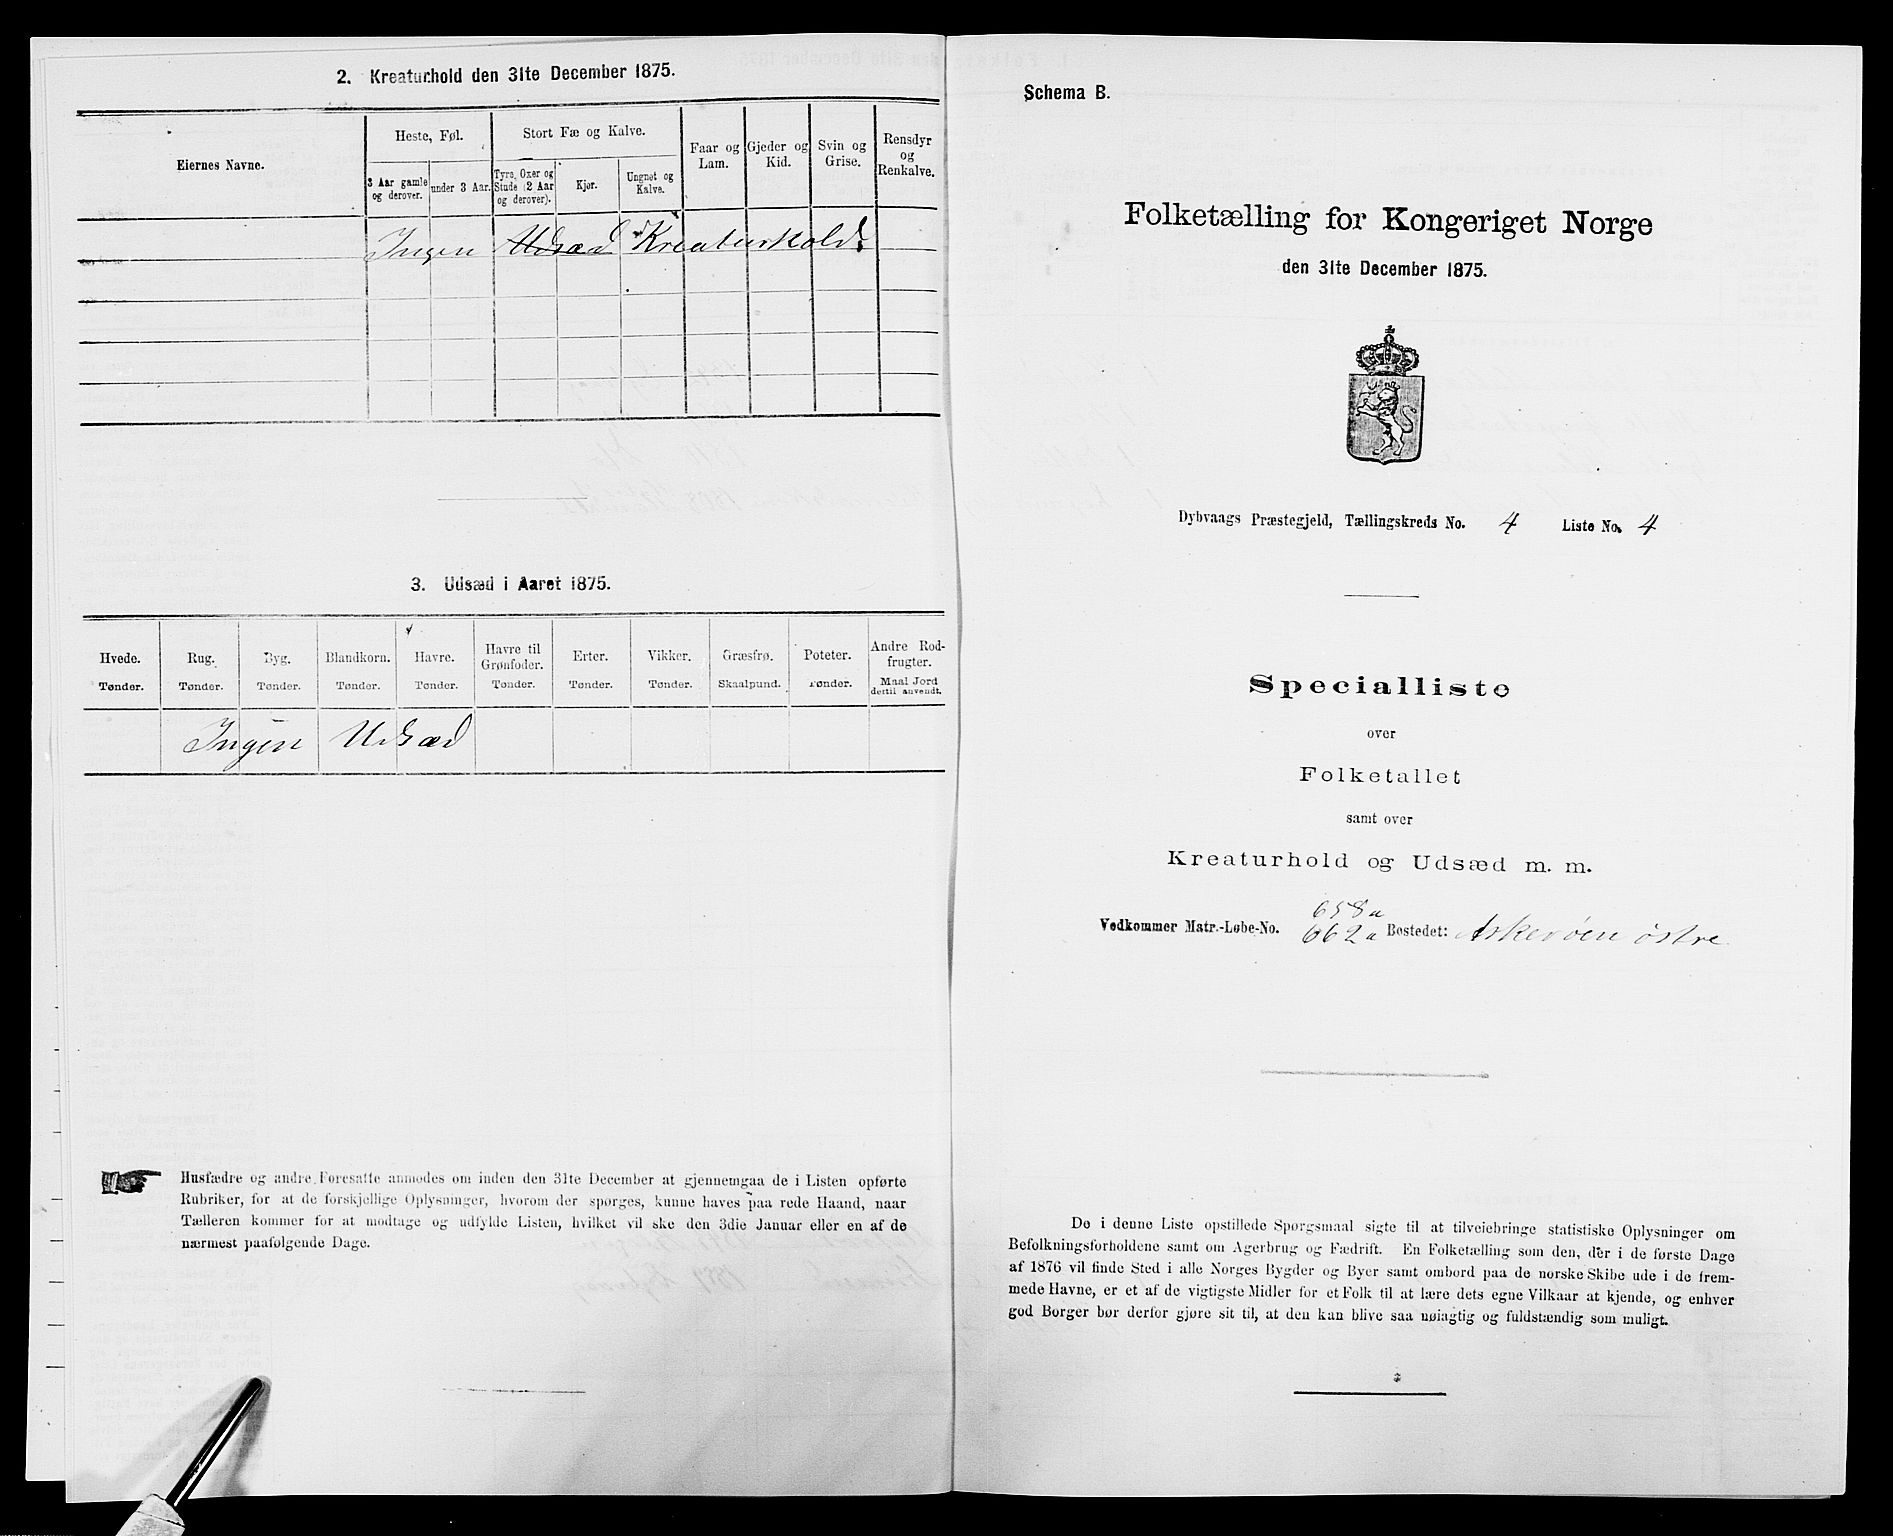 2. Kreaturhold den 31te December 1875.
Eiernes Navne.
Heste, Føl.
3 Aar gamle og derover.
under 3 Aar.
Stort Fæ og Kalve.
Tyre, Oxer og Stude (2 Aar og derover).
Kjør.
Ungnet og Kalve.
Faar og Lam.
Gjeder og Kid.
Svin og Grise.
Rensdyr og Renkalve.
Ingen Udsæd Kreaturhold.
3. Udsæd i Aaret 1875.
Hvede. Tønder.
Rug. Tønder.
Byg. Tønder.
Blandkorn. Tønder.
Havre. Tønder.
Havre til Grønfoder. Tønder.
Erter. Tønder.
Vikker. Tønder.
Græsfrø. Skaalpund.
Poteter. Tønder.
Andre Rodfrugter. Maal Jord dertil anvendt.
Ingen Udsæd
Husfædre og andre Foresatte anmodes om inden den 31te December at gjennemgaa de i Listen opførte
Rubriker, for at de forskjellige Oplysninger, hvorom der spørges, kunne haves paa rede Haand, naar
Tælleren kommer for at modtage og udfylde Listen, hvilket vil ske den 3die Januar eller en af de
nærmest paafølgende Dage.
Schema B.
Folketælling for Kongeriget Norge
den 31te December 1875.
Dybvaags Præstegjeld, Tællingskreds No. 4 Liste No. 4
Specialliste
over
Folketallet
samt over
Kreaturhold og Udsæd m. m.
658a
Vedkommer Matr.-Løbe-No. 662a Bostedet: Askerøen østre
De i denne Liste opstillede Spørgsmaal sigte til at tilveiebringe statistiske Oplysninger om
Befolkningsforholdene samt om Agerbrug og Fædrift. En Folketælling som den, der i de første Dage
af 1876 vil finde Sted i alle Norges Bygder og Byer samt ombord paa de norske Skibe ude i de frem-
mede Havne, er et af de vigtigste Midler for et Folk til at lære dets egne Vilkaar at kjende, og enhver
god Borger bør derfor gjøre sit til, at den kan blive saa nøiagtig og fuldstændig som muligt.